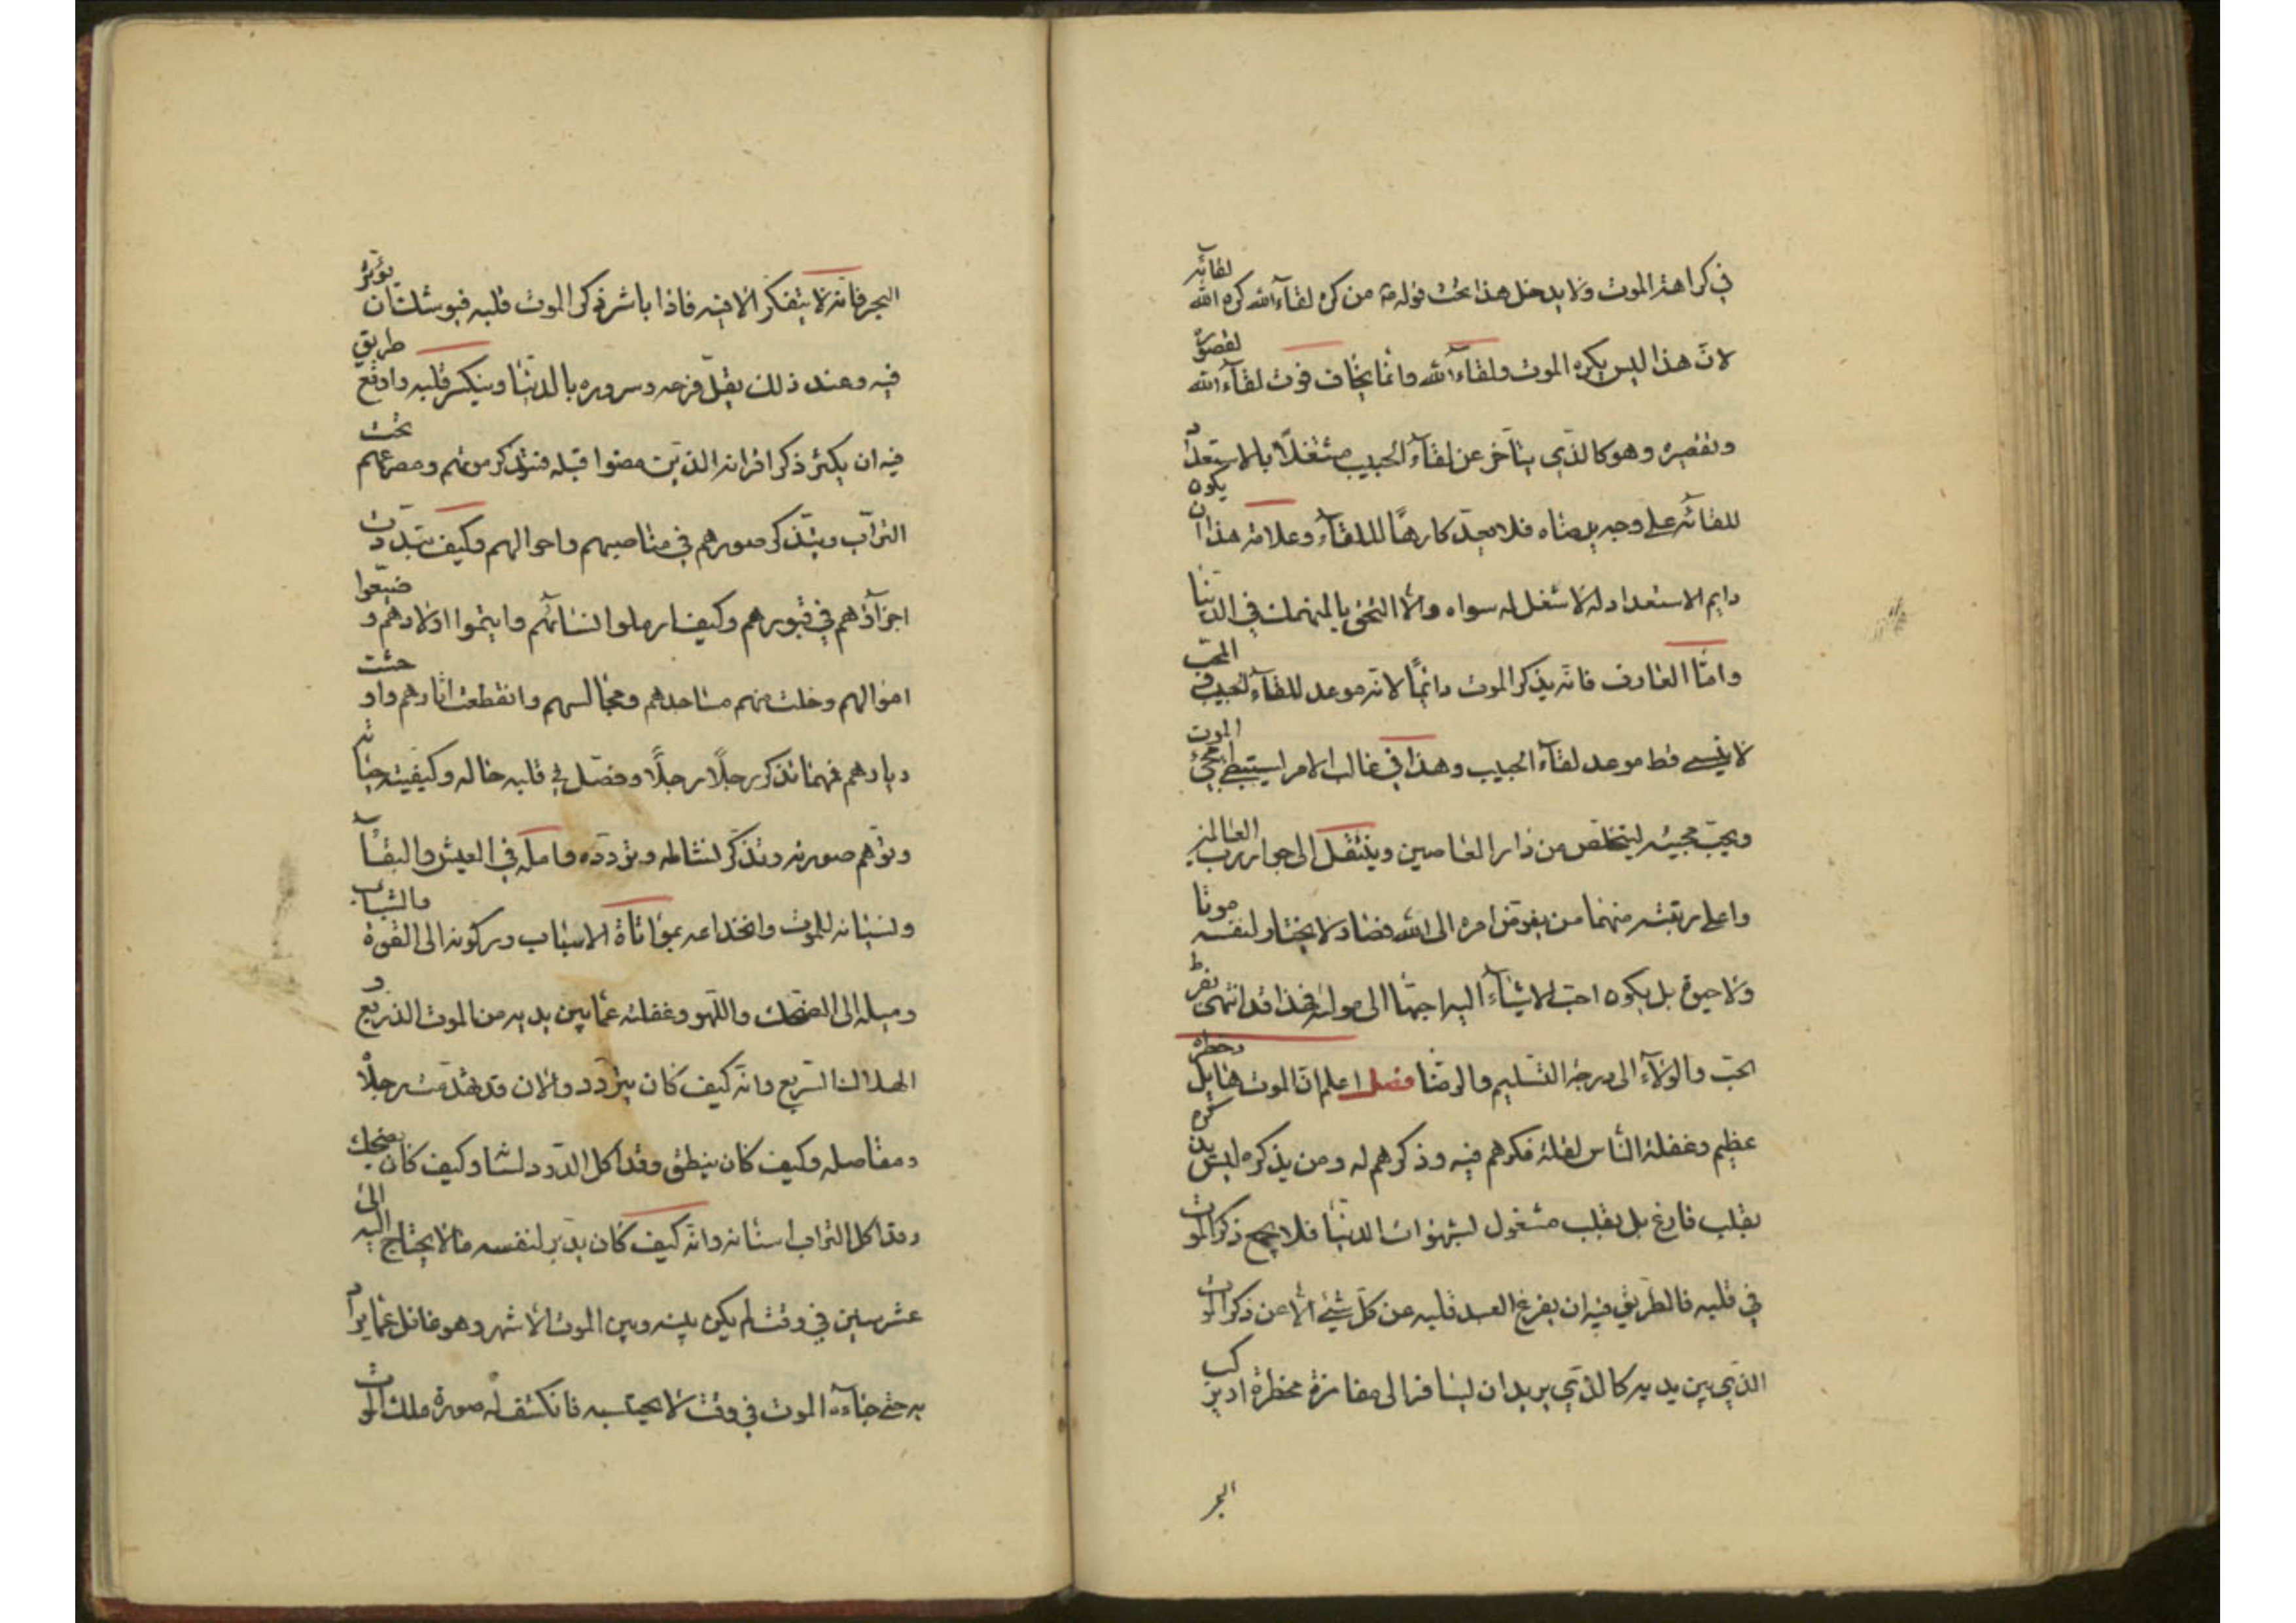 في كراهة الموت ولا يدخل هذا تحت قوله ص من كره لقاء الله كره الله لقائه
لانّ هذا ليس يكره الموت ولقاء الله وانّما يخاف فوت لقاء الله لقصوره
وتقصيره وهو كالذي يتأخّر عن لقاء الحبيب مشتغلاً بالاستعداد
للقائه على وجه يرضاه فلا يعدّ كارهًا للقاء وعلامة هذا ان يكون
دايم الاستعداد له لا شغل له سواه والّا التحق بالمنهمك في الدّنيا
وامّا العارف فانّه يذكر الموت دائمًا لانّه موعد للقاء الحبيب والمحبّ
لا ينسى قط موعد لقاء الحبيب وهذا في غالب الامر يستبطئ مجيئ الموت
ويحبّ مجيئه ليتخلّص من دار العاصين وينتقل الى جوار ربّ العالمين
واعلى رتبته منهما من يفوّض امره الى الله فصار لا يختار لنفسه موتا
ولا حيوة بل يكون احبّ الاشياء اليه احبّها الى مولاه فهذا قد انتهى بفرط
الحبّ والولاء الى درجة التسليم والرضا فصل اعلم انّ الموت هايل وخطره
عظيم وغفلة النّاس لقلة فكرهم فيه وذكرهم له ومن يذكره ليس يذكره
بقلب فارغ بل بقلب مشغول لشهوات الدنيا فلا ينجع ذكر الموت
في قلبه فالطّريق فيه ان يفرغ العبد قلبه عن كلّ شيئ الّا عن ذكر الموت
الذي بين يديه كالذي يريد ان يسافر الى مفازة مخطرة او يركب
البحر
البحر فانّه لا يتفكّر الّا فيه فاذا باشر ذكر الموت قلبه فيوشك ان يؤثّر
فيه وعند ذلك يقلّ فرحه وسروره بالدنيا وينكسر قلبه واوقع طريق
فيه ان يكثر ذكر اقرانه الذين مضوا قبله فتذكر موتهم ومصرعهم تحت
التراب ويتذكّر صورهم في مناصبهم واحوالهم وكيف تبدّدت
اجزاؤهم في قبورهم وكيف ارملوا نسائهم وايتموا اولادهم وضيّعوا
اموالهم وخلت منهم مساجدهم ومجالسهم وانقطعت اثارهم واوحشت
ديارهم فمهما تذكّر رجلاً رجلاً وفصّل في قلبه حاله وكيفيّة حياته
وتوّهم صورته وتذكّر نشاطه وتردّده وامله في العيش والبقاء
ونسيانه للموت وانخداعه بمواتاة الاسباب وركونه الى القوة والشباب
وميله الى الضّحك واللّهو وغفلته عمّا بين يديه من الموت الذريع و
الهلاك السّريع وانّه كيف كان يتردّد والان قد تهدّمت رجلاه
ومفاصله وكيف كان ينطق وقد اكل الدّود لسانه وكيف كان يضحك
وقد اكل التراب اسنانه وانّه كيف كان يدبّر لنفسه ما لا يحتاج اليه الى
عشر سنين في وقت لم يكن بينه وبين الموت الّا شهر وهو غافل عمّا يراد
به حتى جاءه الموت في وقت لا يحتسبه فانكشف له صورة ملك الموت